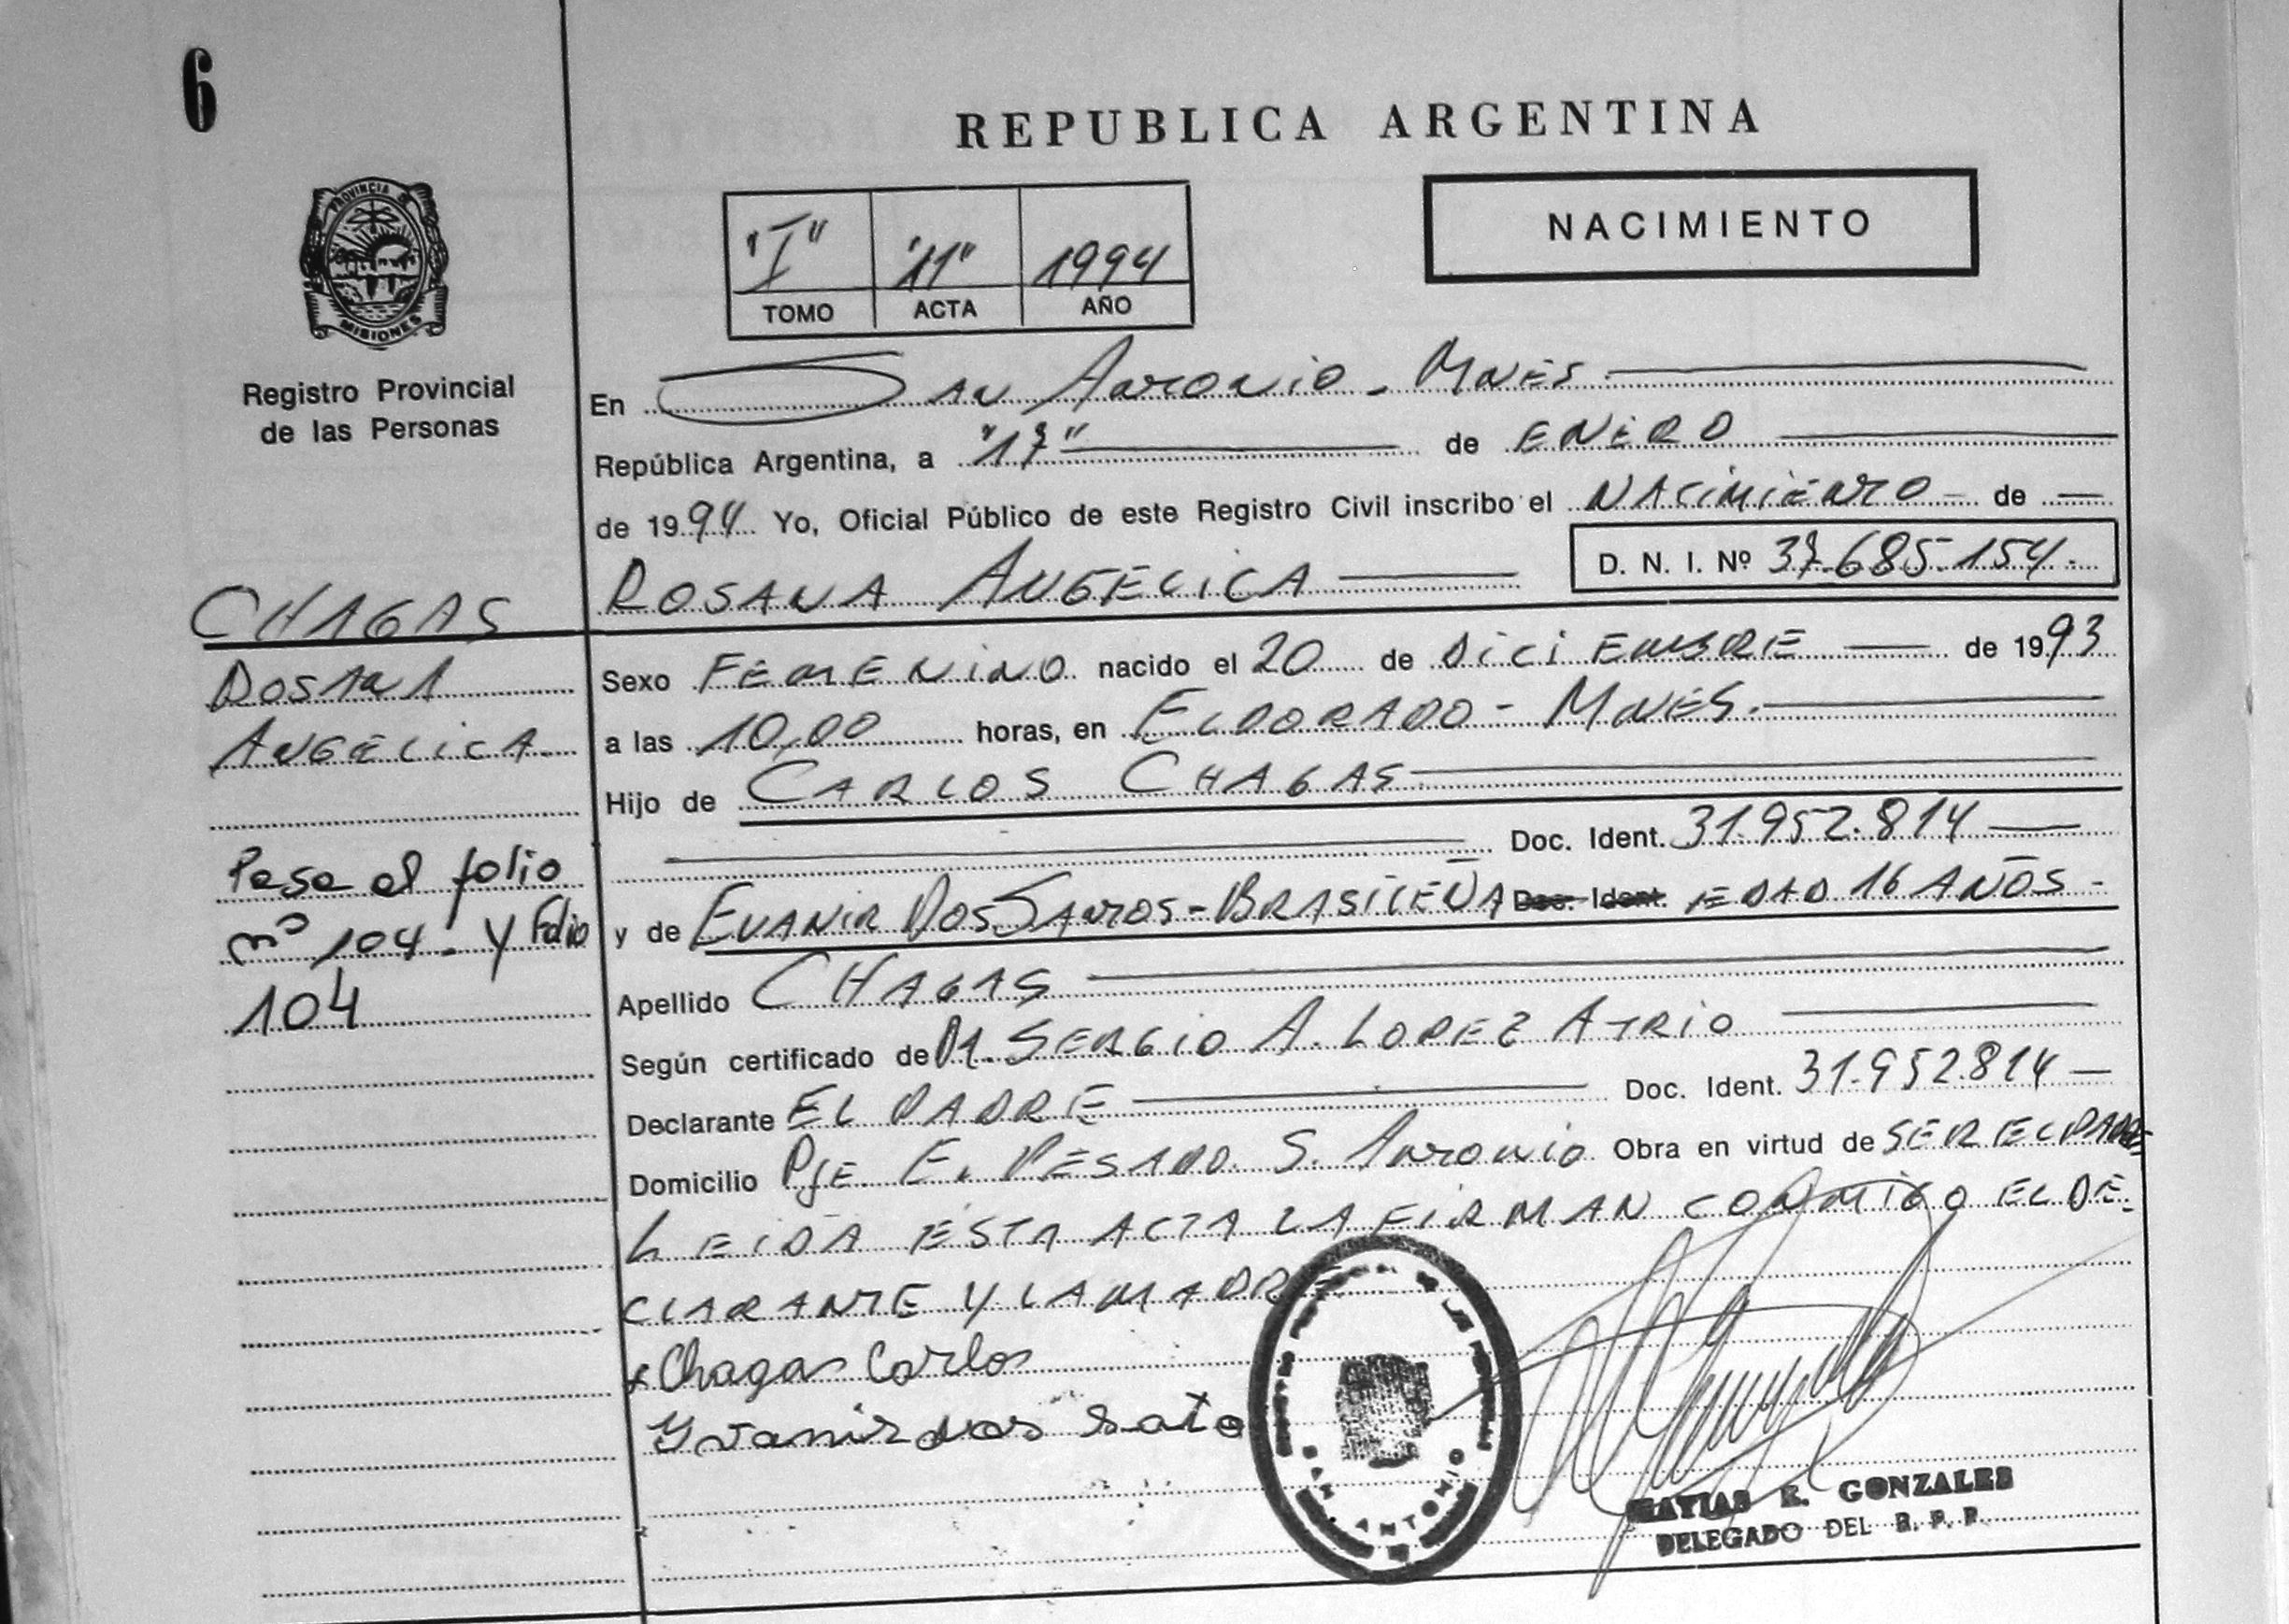 6
REPUBLICA ARGENTINA
NACIMIENTO
"I" "11" 1994
TOMO ACTA AÑO
PROVINCIA DE
MISIONES
Registro Provincial
de las Personas
En SAN ANTONIO - MNES.
República Argentina, a "17" de ENERO
de 1994 Yo, Oficial Público de este Registro Civil inscribo el NACIMIENTO de
ROSANA ANGELICA
D. N. I. Nº 37.685.154.-
CHAGAS
ROSANA
ANGELICA.
Pasa al folio
nº 104. y Folio
104
Sexo FEMENINO nacido el 20 de DICIEMBRE de 1993
a las 10,00 horas, en ELDORADO - MNES.
Hijo de CARLOS CHAGAS
Doc. Ident. 31.952.814
y de EVANIR DOS SANTOS - BRASILEÑA Doc. Ident. EDAD 16 AÑOS -
Apellido CHAGAS
Según certificado de DR. SERGIO A. LOPEZ ATRIO
Declarante EL PADRE Doc. Ident. 31.952.814
Domicilio PJE. E. PESADO. S. ANTONIO Obra en virtud de SER EL PADRE
LEIDA ESTA ACTA LA FIRMAN CONMIGO EL DE-
CLARANTE Y LA MADRE
x Chagas Carlos
SAN ANTONIO
MATIAS R. GONZALES
DELEGADO DEL R. P. P.